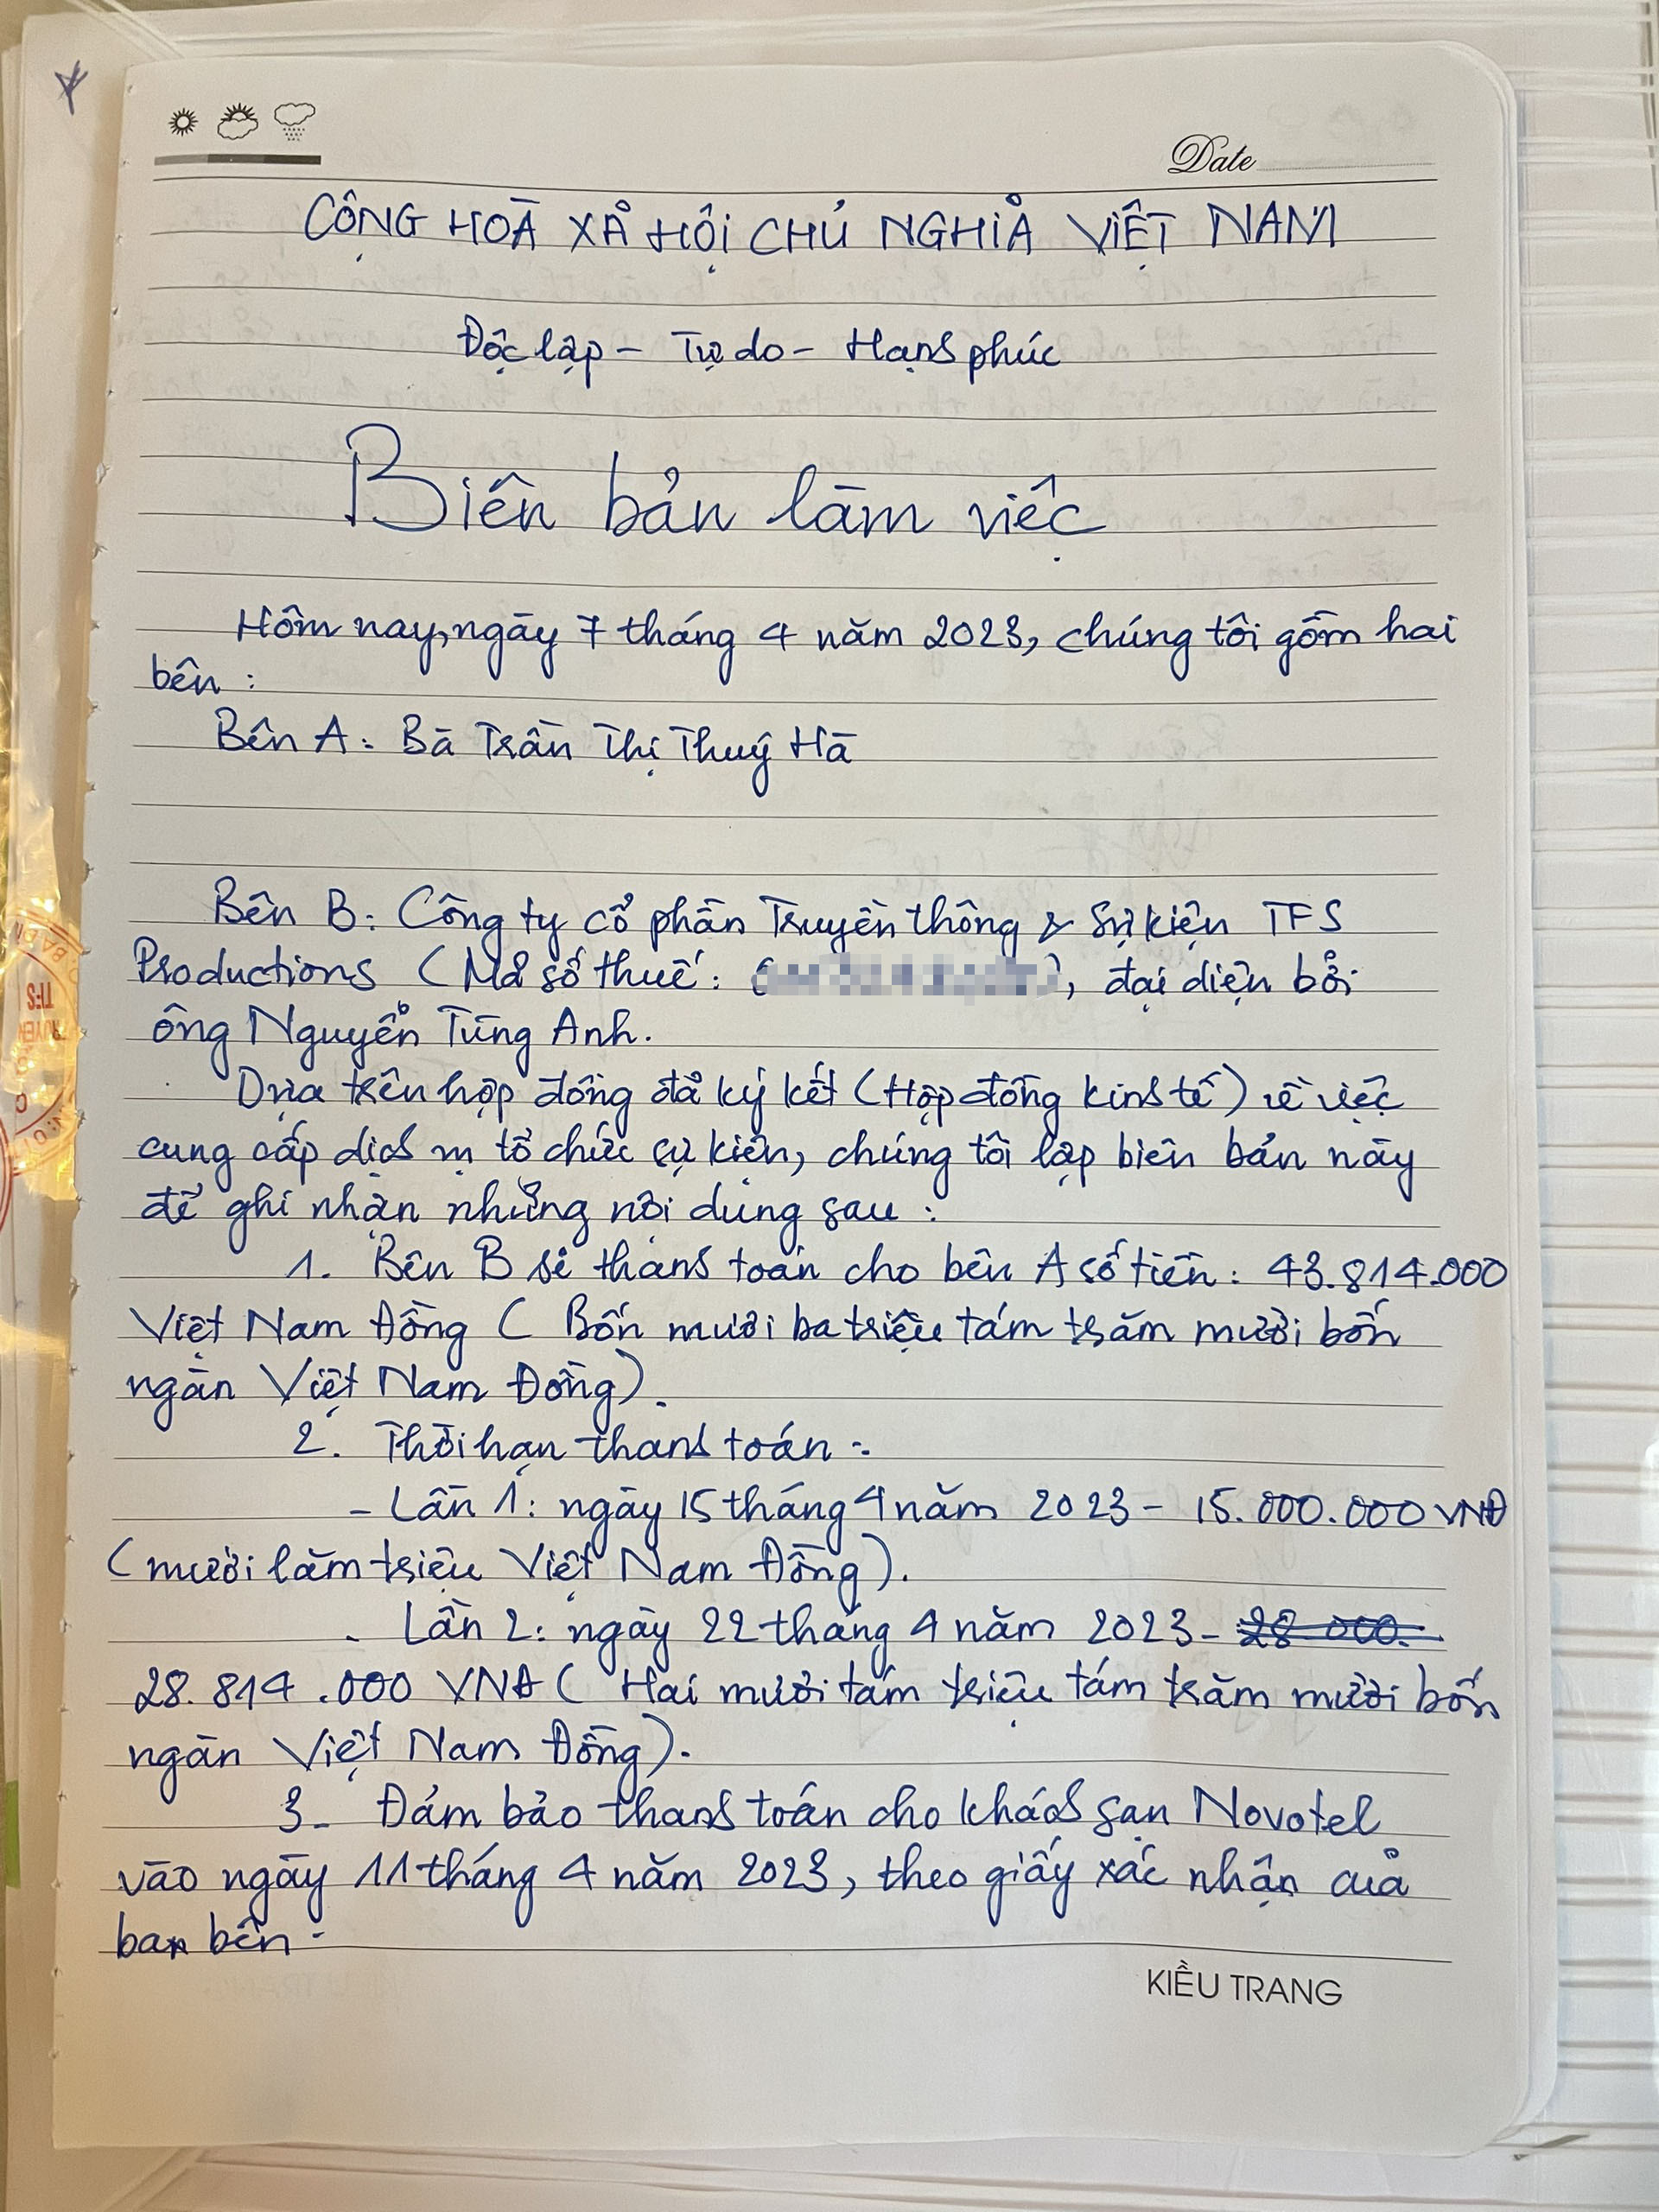 Date
CỘNG HOÀ XÃ HỘI CHỦ NGHĨA VIỆT NAM
Độc lập - Tự do - Hạnh phúc
Biên bản làm việc
Hôm nay, ngày 7 tháng 4 năm 2023, chúng tôi gồm hai
bên :
Bên A: Bà Trần Thị Thuý Hà
Bên B: Công ty cổ phần Truyền thông & Sự kiện TFS
Productions (Mã số thuế: ), đại diện bởi
ông Nguyễn Tùng Anh.
Dựa trên hợp đồng đã ký kết (Hợp đồng kinh tế) về việc
cung cấp dịch vụ tổ chức sự kiện, chúng tôi lập biên bản này
để ghi nhận những nội dung sau :
1. Bên B sẽ thanh toán cho bên A số tiền: 43.814.000
Việt Nam Đồng ( Bốn mươi ba triệu tám trăm mười bốn
ngàn Việt Nam Đồng).
2. Thời hạn thanh toán :
- Lần 1: ngày 15 tháng 4 năm 2023 - 15.000.000 VNĐ
(mười lăm triệu Việt Nam Đồng).
- Lần 2: ngày 22 tháng 4 năm 2023 - 28 000.
28.814.000 VNĐ ( Hai mươi tám triệu tám trăm mười bốn
ngàn Việt Nam Đồng).
3- Đảm bảo thanh toán cho khách sạn Novotel
vào ngày 11 tháng 4 năm 2023, theo giấy xác nhận của
ban bên.
KIỀU TRANG
TFS